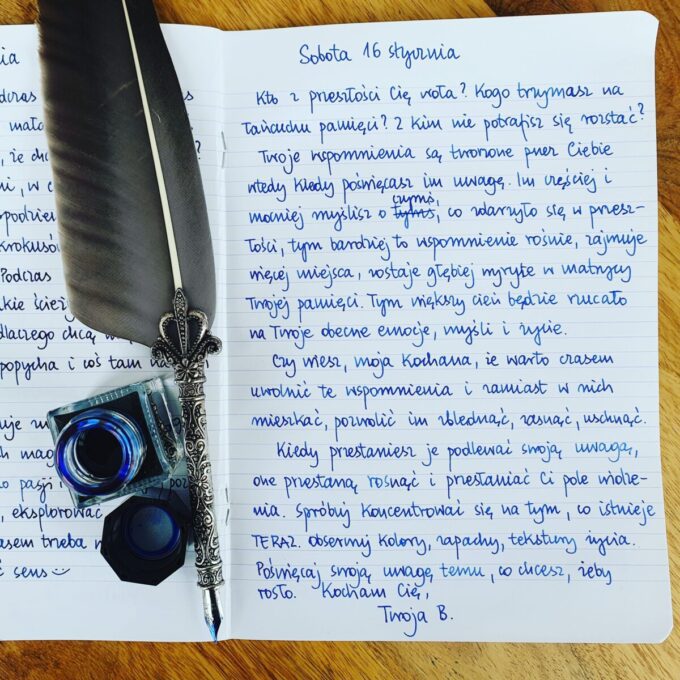 ia
dczas
mało
, że chc
ni, w c
podzien
krokusó
Podczas
kie ście
dlaczego chcą w
popycha i coś tam na
uje w
ch mag
o pasji
, eksplorować
asem trzeba
ć sens
Sobota 16 stycznia
Kto z przeszłości Cię woła? Kogo trzymasz na
łańcuchu pamięci? Z kim nie potrafisz się rozstać?
Twoje wspomnienia są tworzone przez Ciebie
wtedy kiedy poświęcasz im uwagę. Im częściej i
czymś,
mocniej myślisz o tymś, co zdarzyło się w przesz-
łości, tym bardziej to wspomnienie rośnie, zajmuje
więcej miejsca, zostaje głębiej wyryte w matrycy
Twojej pamięci. Tym większy cień będzie rzucało
na Twoje obecne emocje, myśli i życie.
Czy wiesz, moja Kochana, że warto czasem
uwolnić te wspomnienia i zamiast w nich
mieszkać, pozwolić im zblednąć, zasnąć, uschnąć.
Kiedy przestaniesz je podlewać swoją uwagą,
one przestaną rosnąć i przesłaniać Ci pole widze-
nia. Spróbuj koncentrować się na tym, co istnieje
TERAZ. Obserwuj kolory, zapachy, tekstury życia.
Poświęcaj swoją uwagę temu, co chcesz, żeby
rosło. Kocham Cię,
Twoja B.